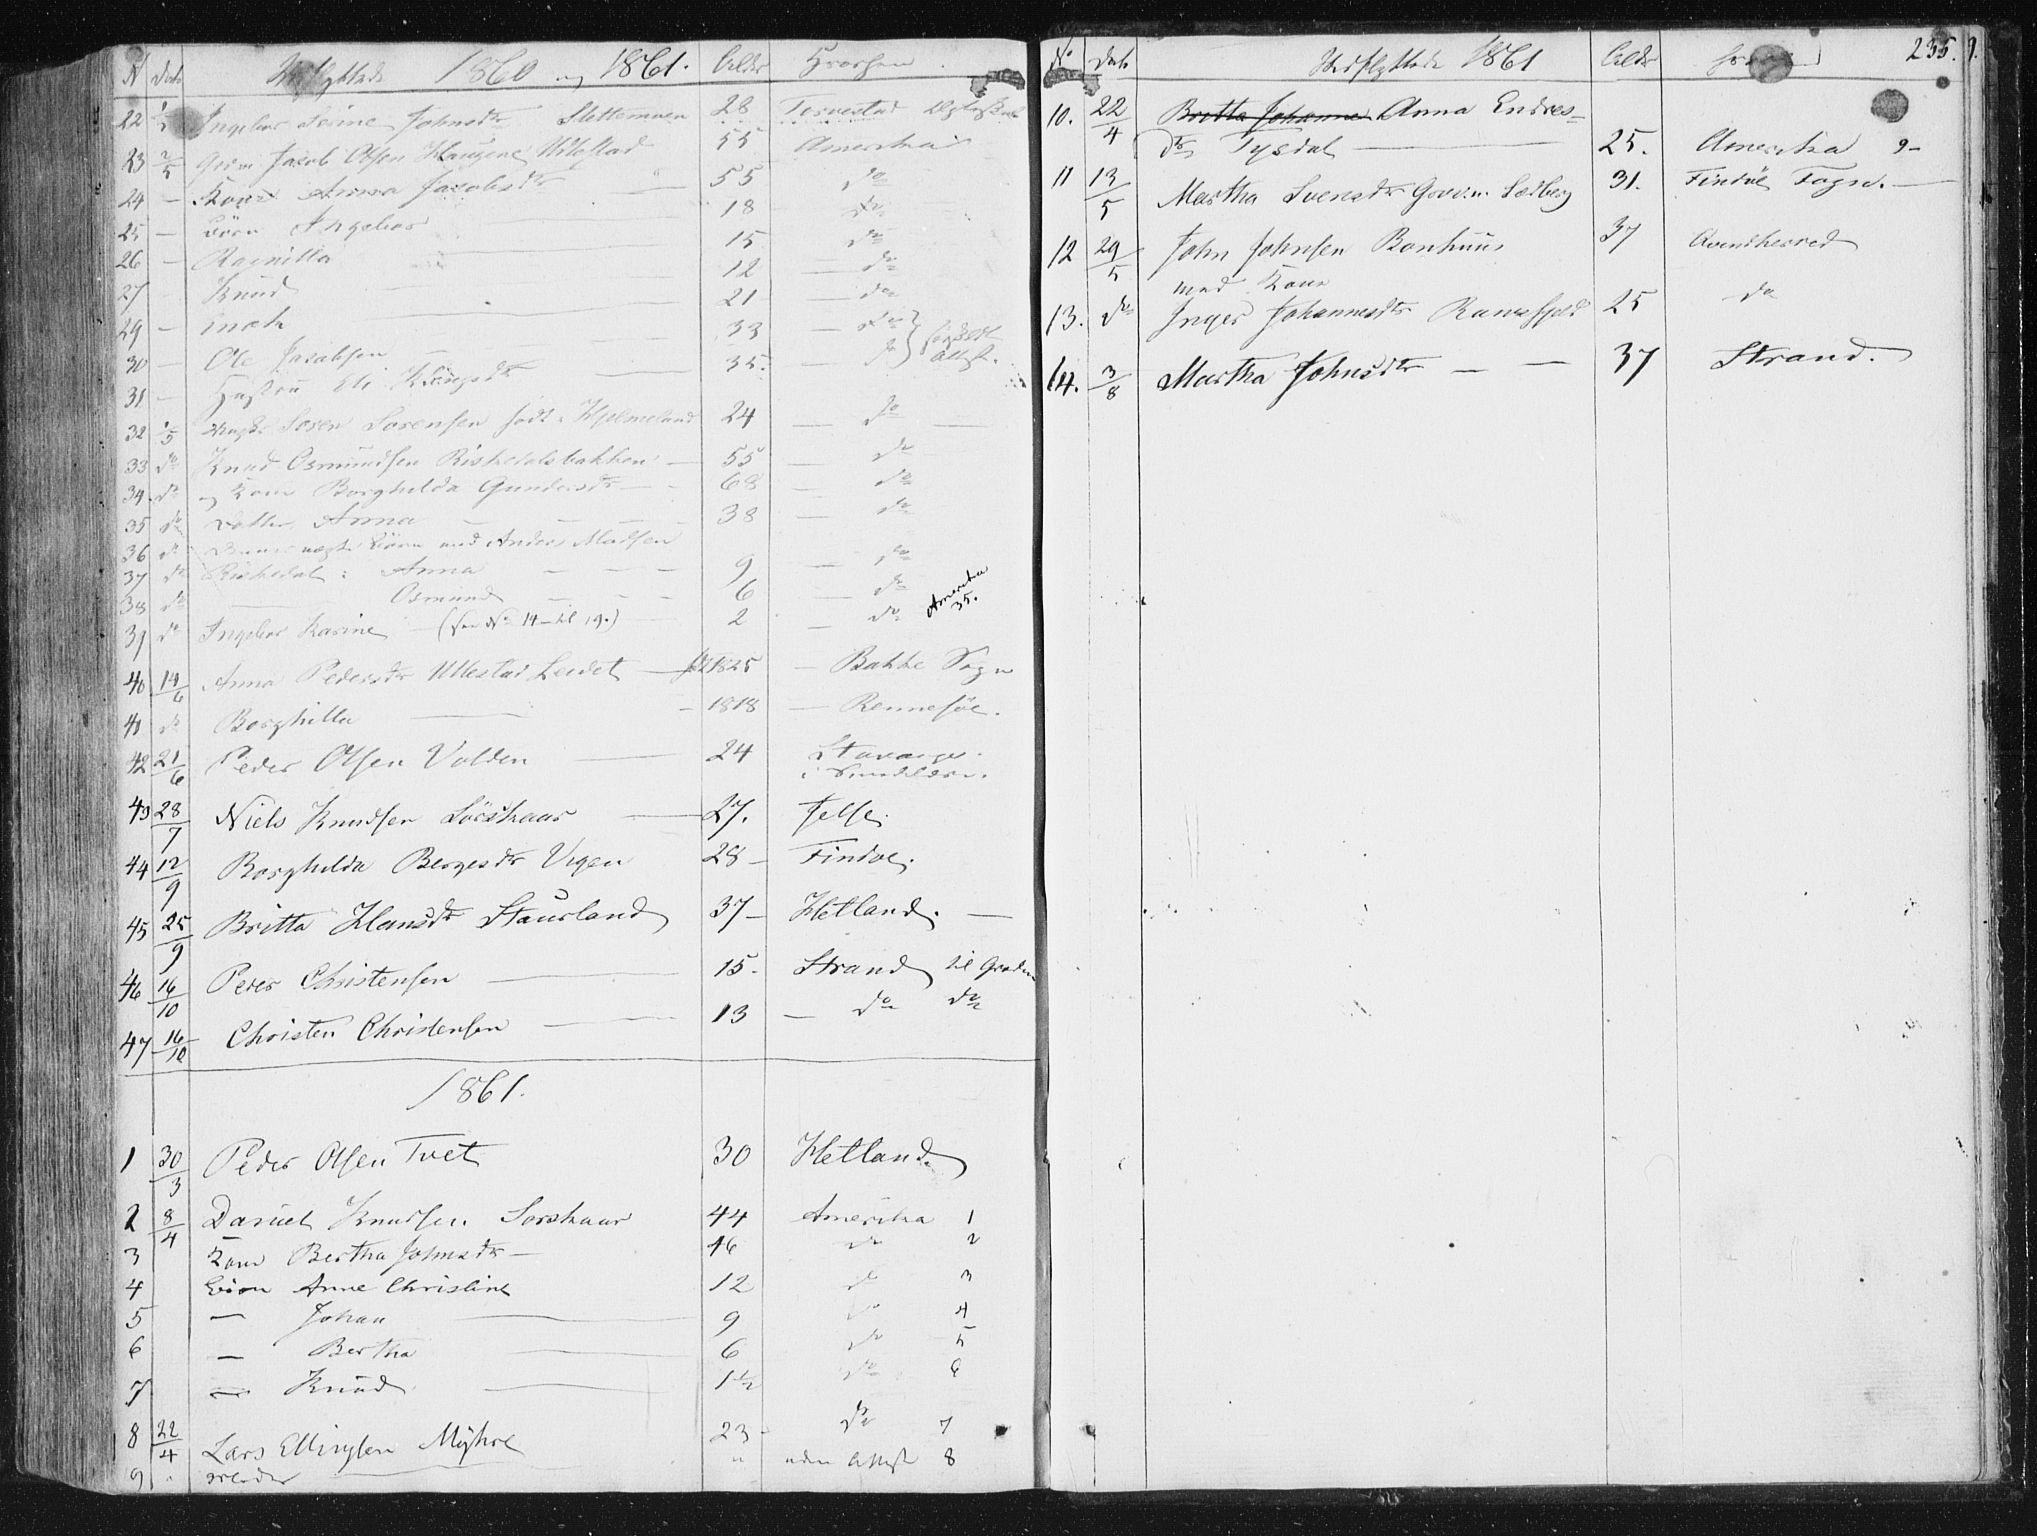 N Dato Udflyttede 1860 og 1861. Alder Hvorhen
22 1/5 Ingebor Serine Johnsdtr Slettemoen 28 Torvestad
23 2/5 Jacob Olsen Haugene Ullestad 55 Amerika
24 — Kone Anna Jacobsdtr 55 do
25 — Börn Ingebor 18 do
26 — Ragnilla 15 do
27 — Knud 12 — do
29 — Enok 21 — do
30 — Ole Jacobsen — 33 — do
31 — Hustru Eli 35. — do
32 1/5 Soren Sorensen födt i Hjelmeland 24 — do —
33 do Knud Osmundsen Riskedalsbakken — 55 — do
34 do og Kone Borghilda Gundersdtr — 68 — do
35 do Datter Anna — 38 — do
36 do Börn med Anders Madsen
37 do Riskedal: Anna — — — 9 — do
38 do Osmund — — — 6 — do
39 do Ingebor Karine — (See No 14 til 19.) 2 — do Amerika 35.
40 14/6 Anna Pedersdtr Ullestad Leidet — födt 1825 — Bakke Sogn
41 do Borghilla — 1818 — Rennesöe.
42 21/6 Peder Olsen Volden — 24 Stavanger
43 28/7 Niels Knudsen Sörskaar — 27. Jelse
44 12/9 Borghilda Bergesdtr Vigen 28 — Findöe.
45 25/9 Britta Hansdtr Staurland 37 — Hetland. —
46 16/10 Peder Christensen — 15. Strand
47 16/10 Christen Christensen — 13 — do do
1861.
1 30/3 Peder Olsen Tvet 30 Hetland.
2 8/4 Daniel Knudsen Sorskaar 44 Amerika 1
3 Kone Bertha Johnsdtr — 46 do 2
4 Börn Anne Christine 12 do 3
5 — Johan — 9 do 4
6 — Bertha — 6 do 5
7 — Knud — 1½ do 6
8 22/4 Lars Ellingsen Myhre 23 — do 7
9 " " uden Attest 8
No Dato Udflyttede 1861 Alder 235.
10. 22/4 Britta Johanne Anna Endres=
dtr Tysdal — 25. Amerika 9 —
11 13/5 Martha Svensdtr Sedberg 31. Findöe Sogn. —
12 29/5 John Johnsen Bonhuus 37
med Kone
13. do Inger Johannesdtr Ramsfjeld 25 do
14. 3/8 Martha Johnsdtr — — 37 Strand.